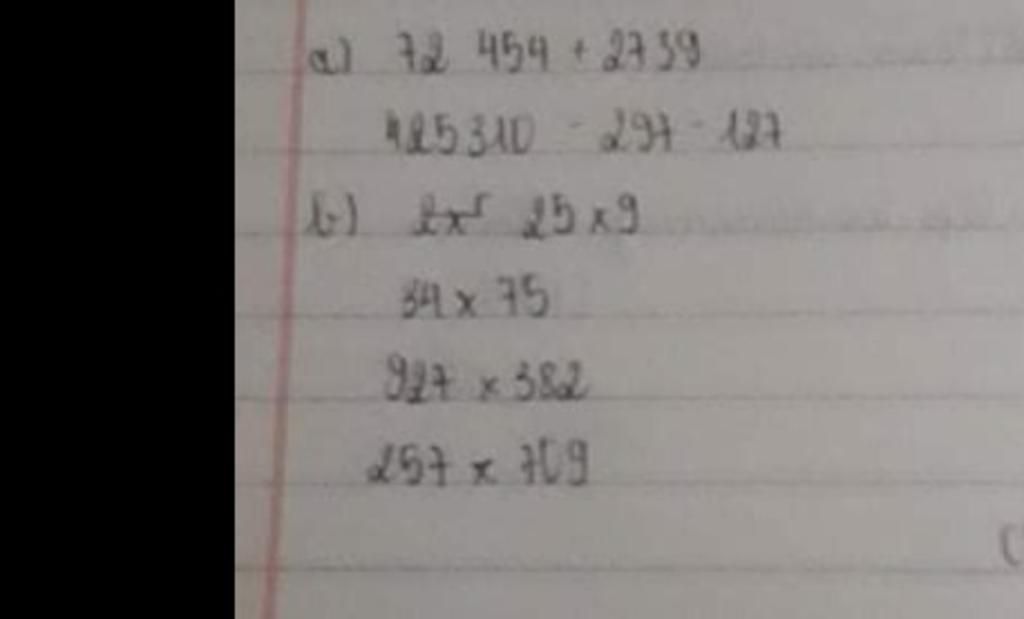 a) 72 454 + 2739
425310 - 297 - 127
b) 25 x 9
34 x 75
927 x 382
257 x 709